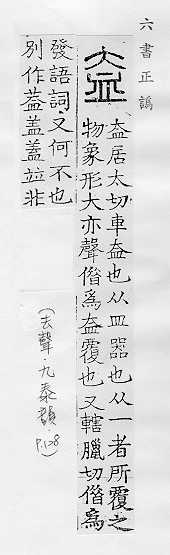 六書正譌
盇
盇居太切車盇也从皿器也从一者所覆之
物象形大亦聲偕爲盇覆也又轄臘切偕爲
發語詞又何不也
別作葢盖蓋竝非
(去聲·九泰韻 P.128)